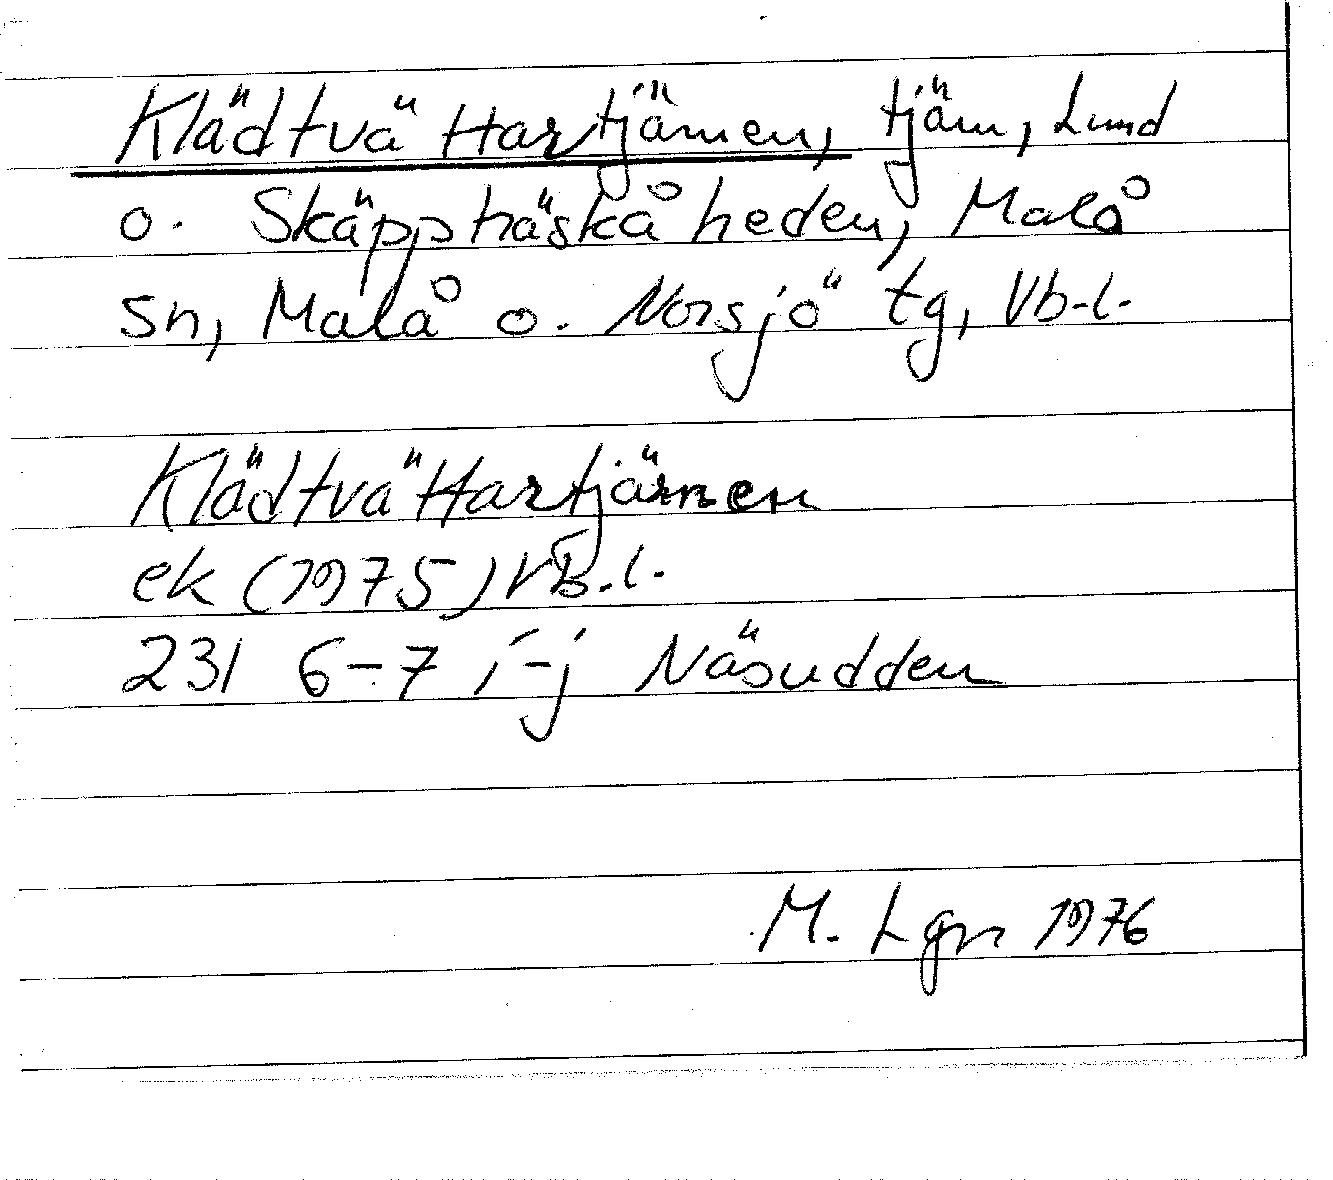 Klädtvättartjärnen, tjärn, Lund
o. Skäppträskåheden, Malå
sn, Malå o. Norsjö tg, Vb-l.
Klädtvättartjärnen
ek (1975) Vb.l.
231 6-7 i-j Näsudden
M. Lgn 1976